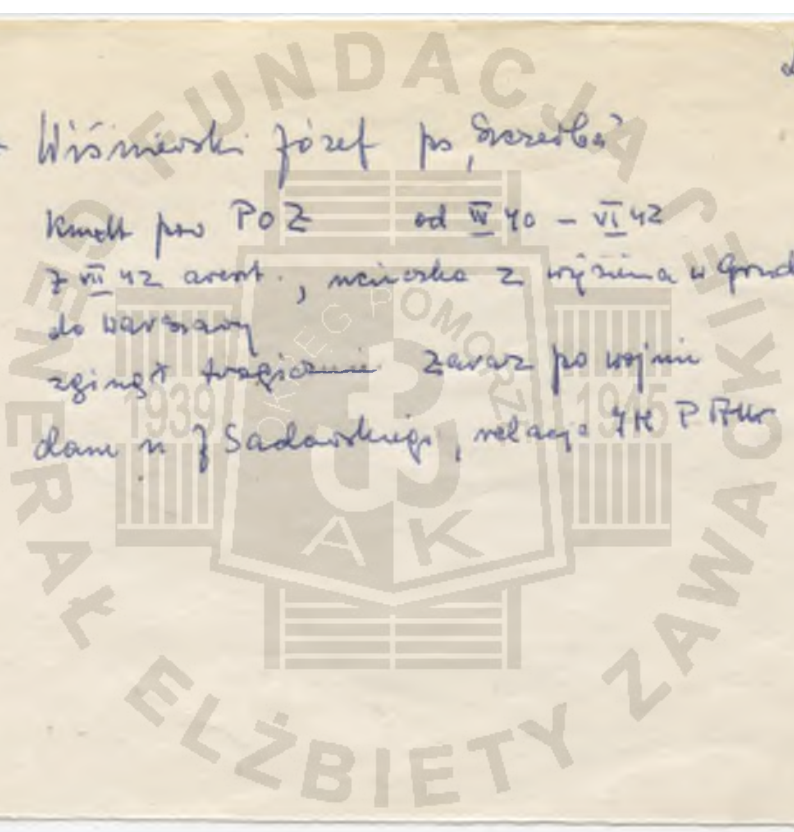 Wiśniewski Józef ps „Szczerba”
Kmdt pow POZ od IV 40 – VI 42
7 VII 42 areszt., ucieczka z więzienia w Grudz
do Warszawy
zginął tragicznie zaraz po wojnie
dane u J Sadowskiego, relacja
FUNDACJA
GENERAŁ ELŻBIETY ZAWACKIEJ
OKRĘG POMORZE
1939 1945
AK